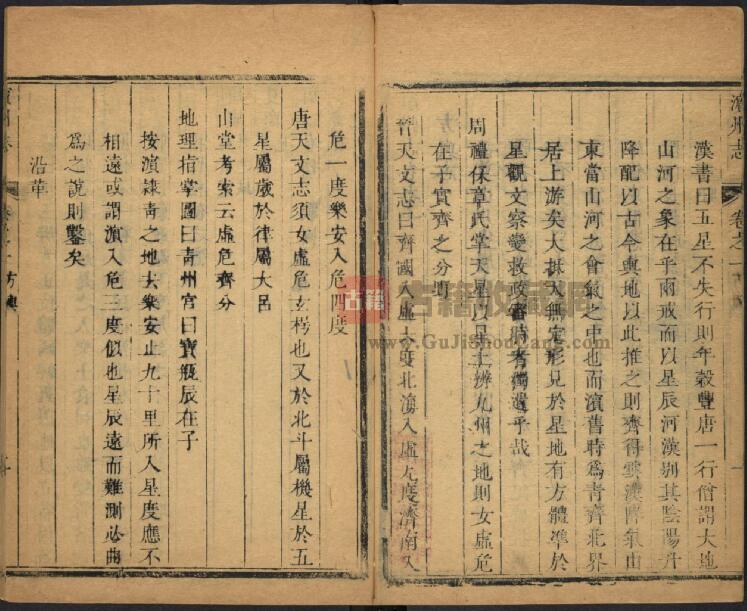 濱州志
卷之一
一
漢書曰五星不失行則年穀豐唐一行僧謂大地
山河之象在乎兩戒而以星辰河漢别其陰陽升
降配以古今輿地以此推之則齊得雲漢降氣山
東當山河之會氣之中也而濱舊時為青齊北界
居上游矣大抵天無定形見於星地有方體凖於
星觀文察變救政審時者獨遺乎哉
周禮保章氏掌天星以星土辨九州之地則女虛危
在子實齊之分野
晉天文志曰齊國入虛六度北海入虛九度濟南入
危一度樂安入危四度
唐天文志須女虛危玄枵也又於北斗屬機星於五
星屬歲於律屬大呂
山堂考索云虛危齊分
地理指掌圖曰青州宫曰寶瓶辰在子
按濱隷青之地去樂安止九十里所入星度應不
相遠或謂濱入危三度似也星辰遠而難測必曲
為之說則鑿矣
沿革
方輿
古籍
古籍收藏网
www.GuJiShouCang.com